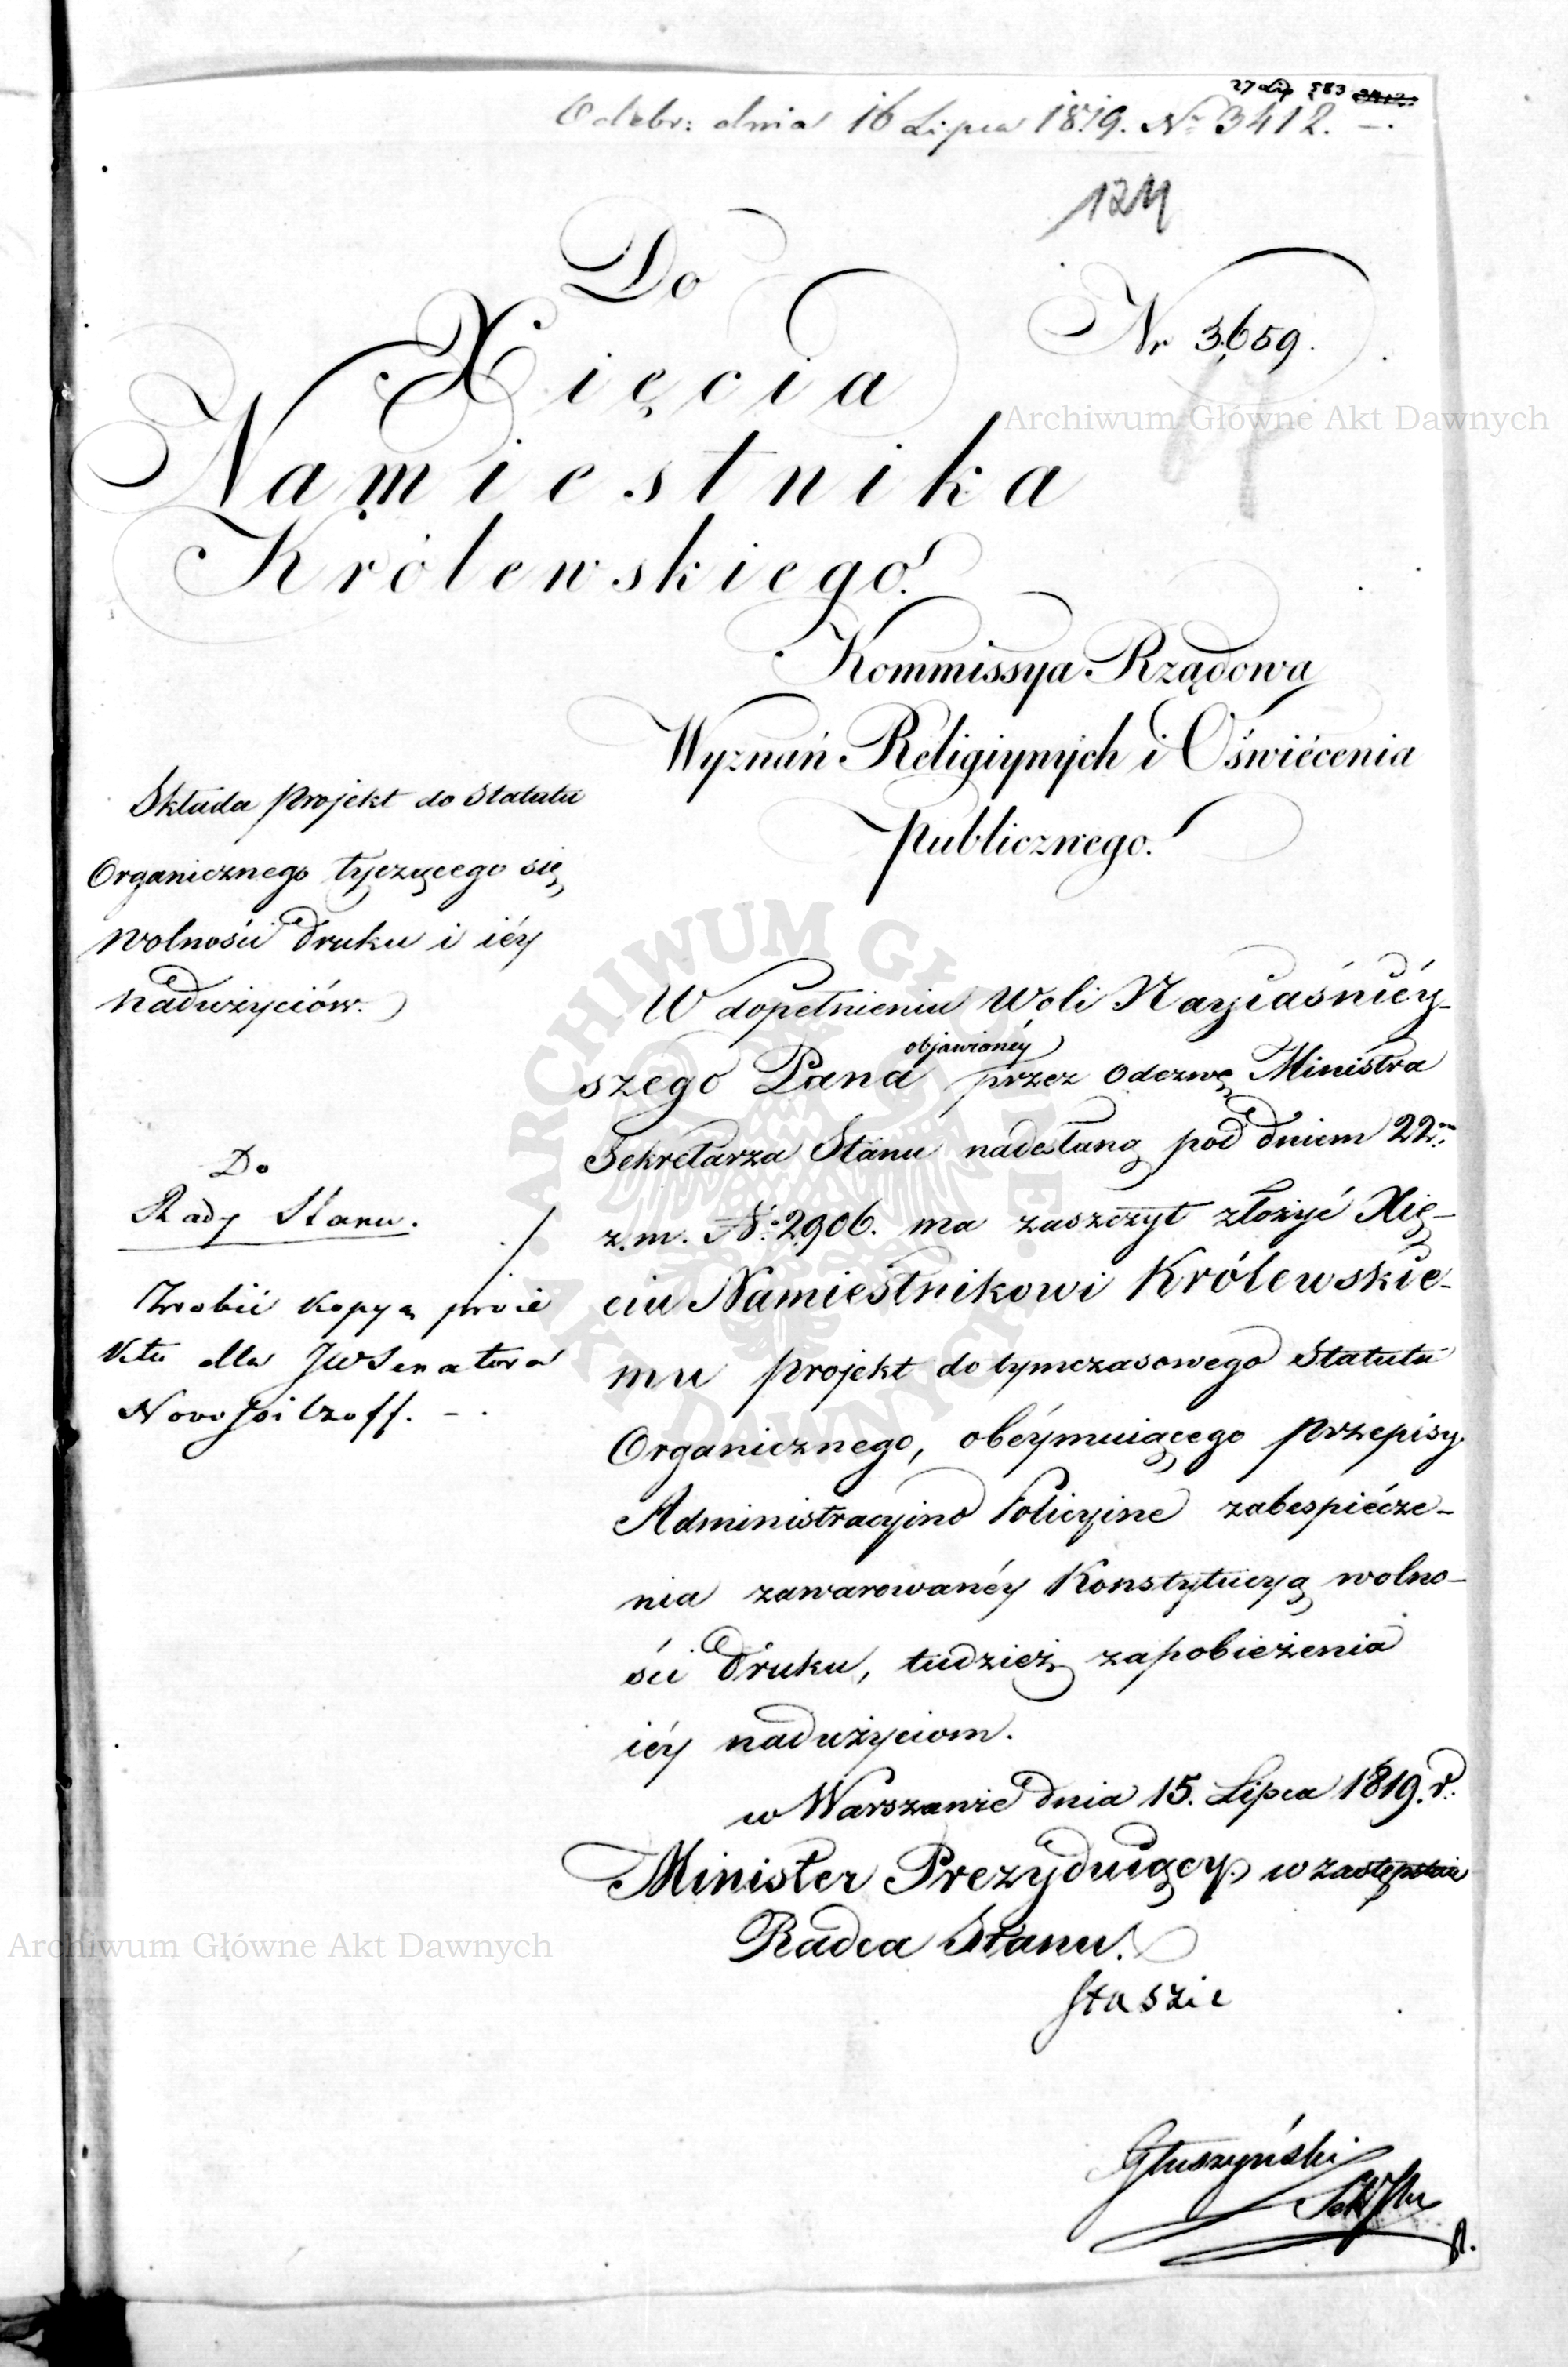 27 Lip 583 3412.
Odebr: dnia 16 Lipca 1819. Nr 3412. —.
124
Do
Nr 3659.
Xięcia
Namiestnika
Królewskiego.
Archiwum Główne Akt Dawnych
Kommissya Rządowa
Wyznań Religiynych i Oświécenia
publicznego.
Składa projekt do Statutu
Organicznego tyczącego się
wolności druku i iéy
nadużyciów.
Do
Rady Stanu.
Zrobić kopyą proie
ktu dla JWSenatora
Novosiltzoff. —.
W dopełnieniu Woli Nayiaśniéy-
objawionéy
szego Pana przez Odezwę Ministra
Sekretarza Stanu nadesłaną pod dniem 22m.
z.m. No. 2906. ma zaszczyt złożyć Xię-
ciu Namiestnikowi Królewskie-
mu projekt do tymczasowego Statutu
Organicznego, obéymuiącego przepisy
Administracyino Policyine zabespiécze-
nia zawarowanéy Konstytucyą wolno-
ści druku, tudzież zapobieżenia
iéy nadużyciom.
w Warszawie dnia 15. Lipca 1819. r.
Minister Prezyduiący w zastępstwie
Radca Stanu.
Staszic
Głuszyński
ARCHIWUM GŁÓWNE AKT DAWNYCH
Archiwum Główne Akt Dawnych